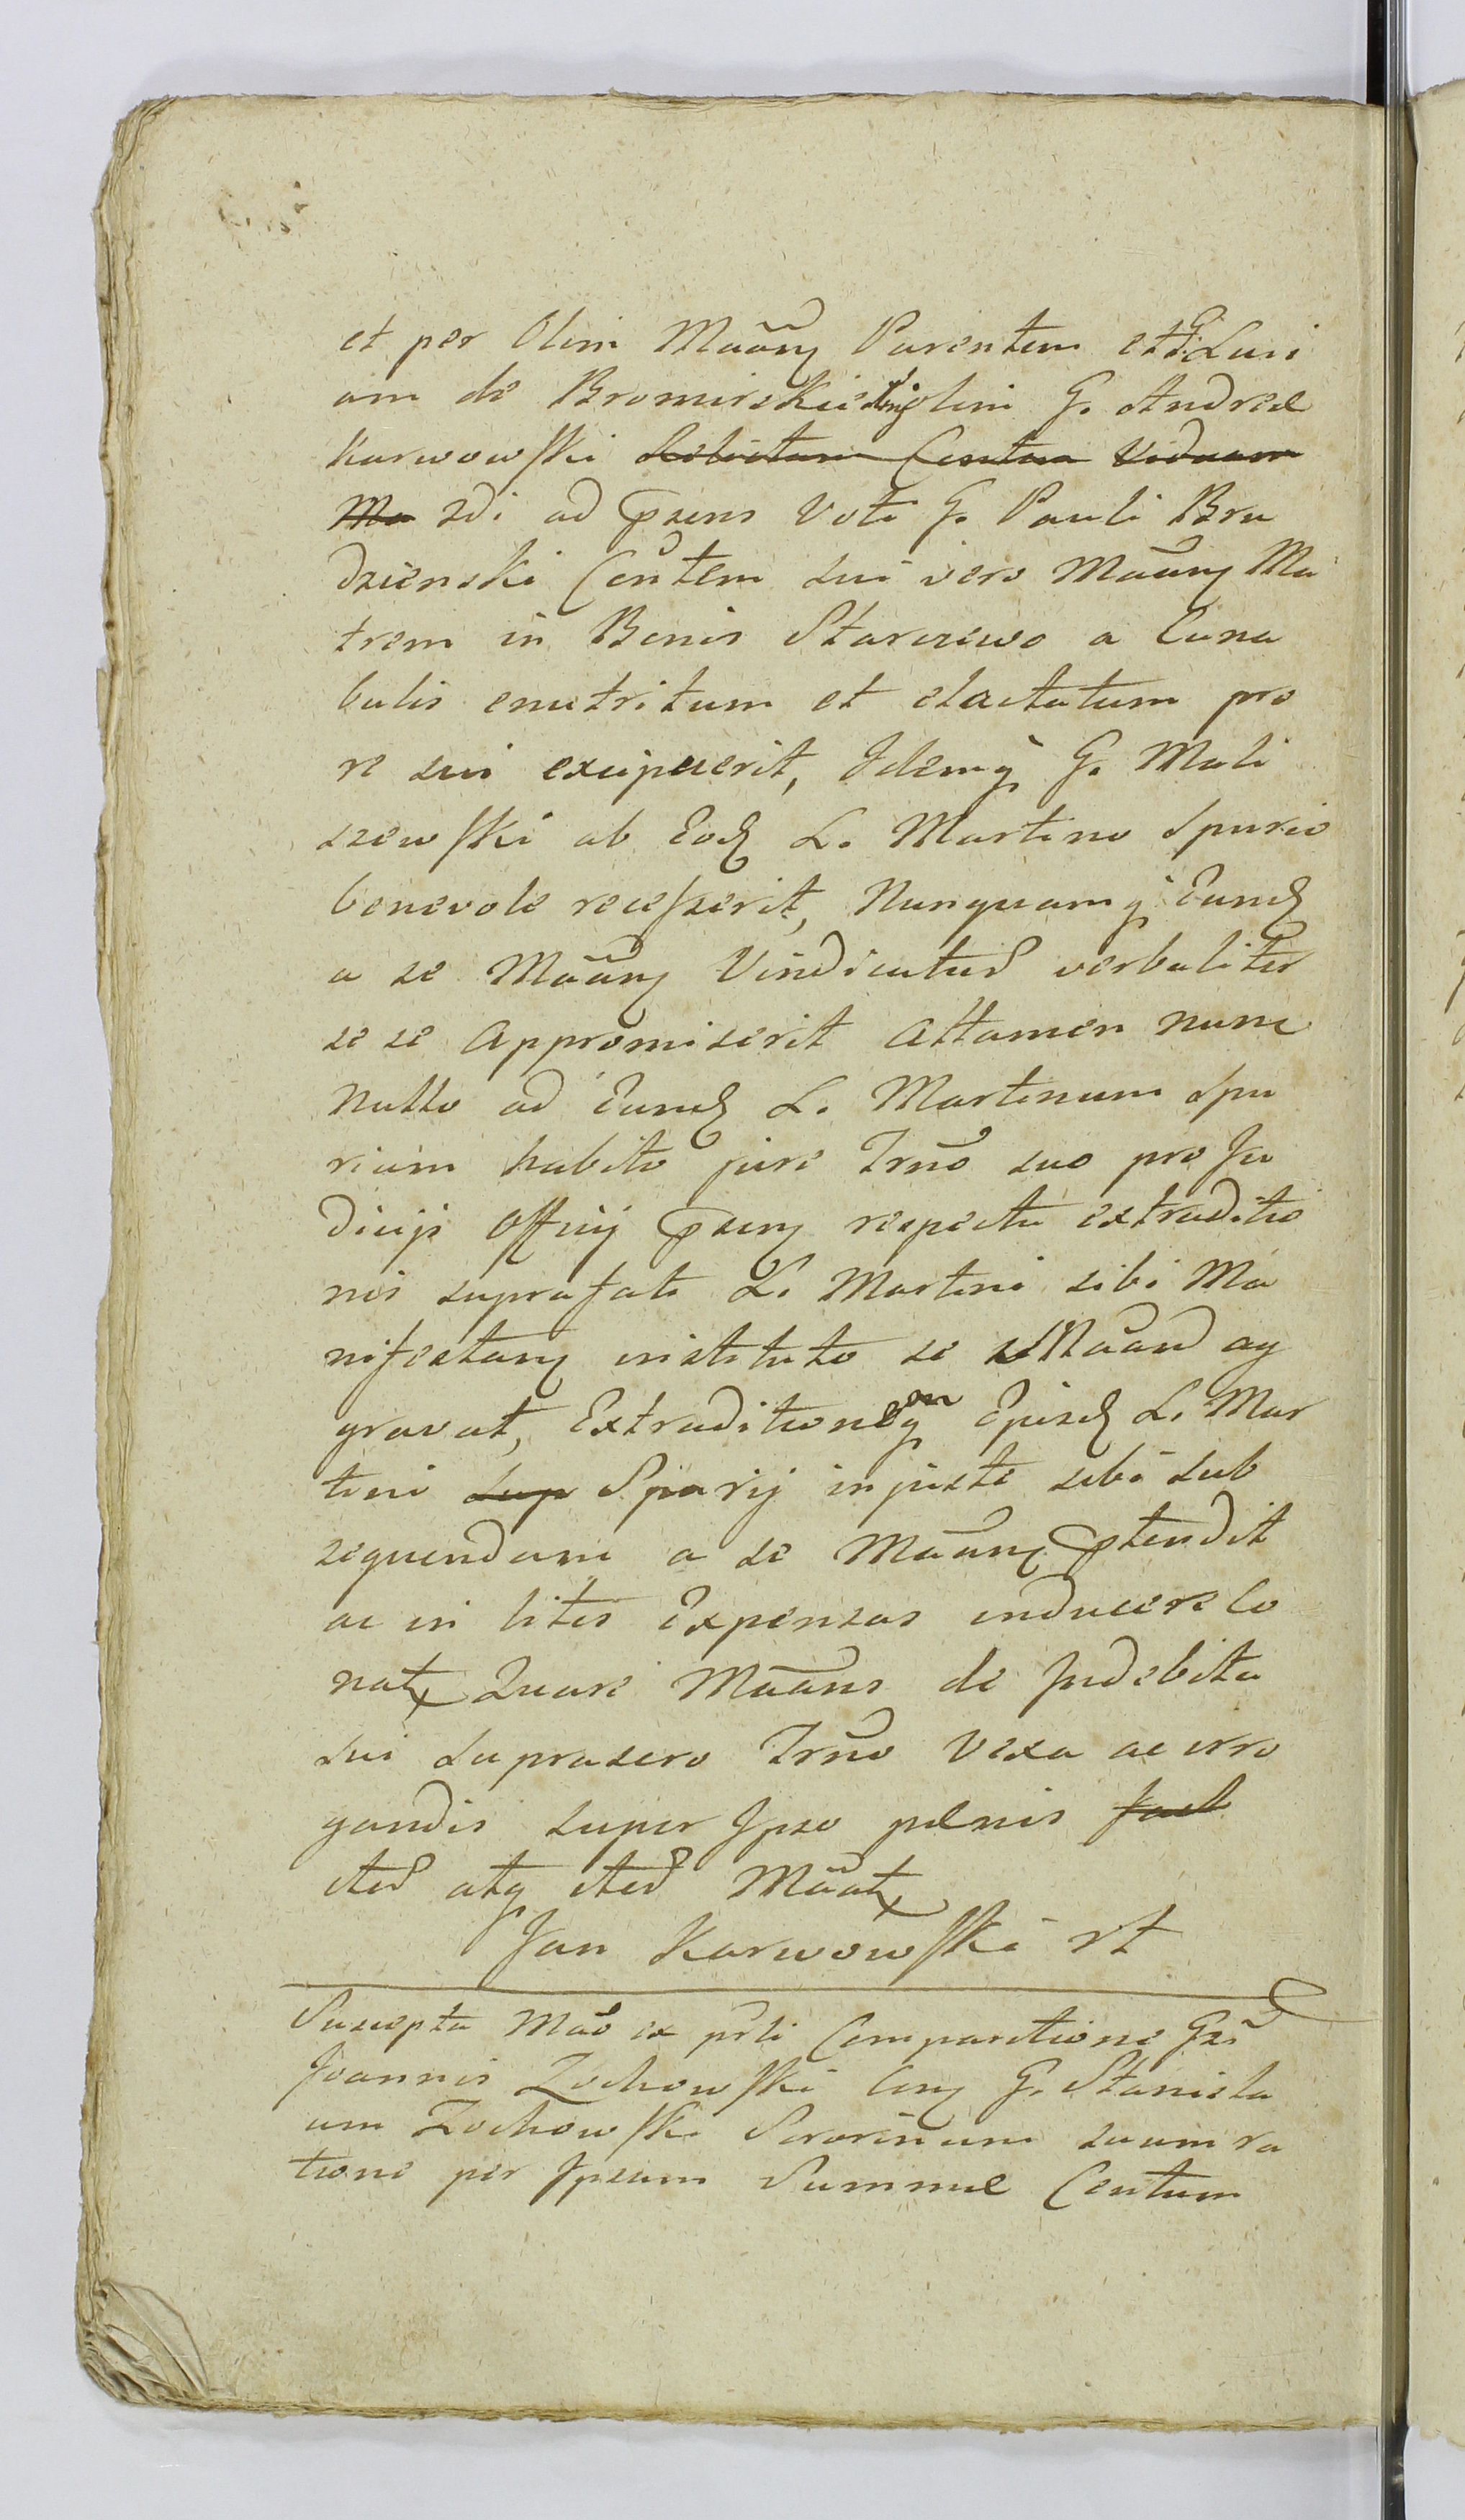 et per Olim Mããnȝ Parentem et G: Luci
am de Bromirskie olim G. Andreæ
Karwowski Relictam Centam Viduam
Ma 2di ad Pzens Voti G. Pauli Bru
dzienski Cenũtem sui vero Mããnȝ Ma
trem in Bonis Starczewo a Cuna
bulis enutritum et elactatum pro
re sui exceperit, Idemq̃ G. Mali
szewski ab Eodȝ L. Martino Spurio
benevole recesserit, Nunquamq̃ Eundȝ
a se Mããnȝ Vindicatur verbaliter
se se appromiserit attamen nunc
Nullo ad Eundȝ L. Martinum Spu
rium habito jure Trm̃o suo pro Ju
dicijs Officij Pzenȝ respectu extraditio
nis suprafati L. Martini sibi Ma
nifestanȝ instituto se Mããnd ag
gravat, Extraditionemq̃ Ejusdȝ L. Mar
tini Sup Spurij injuste sibi sub
sequendam a se Mããnȝ Ptendit
ac in litis Expensas inducere Co
nat, Quare Mããns de Indebita
sui suprasero Trm̃o Vexa ac irro
gandis super Ipso pænis
itȓ atq itȓ Mããt
Jan Karwowski rt
Suscepta Mão ex psli Comparitione Gsi
Joannis Zochowski Conȝ G. Stanisla
um Zochowski Sororinum suum ra
tione per Ipsum Summæ Centum